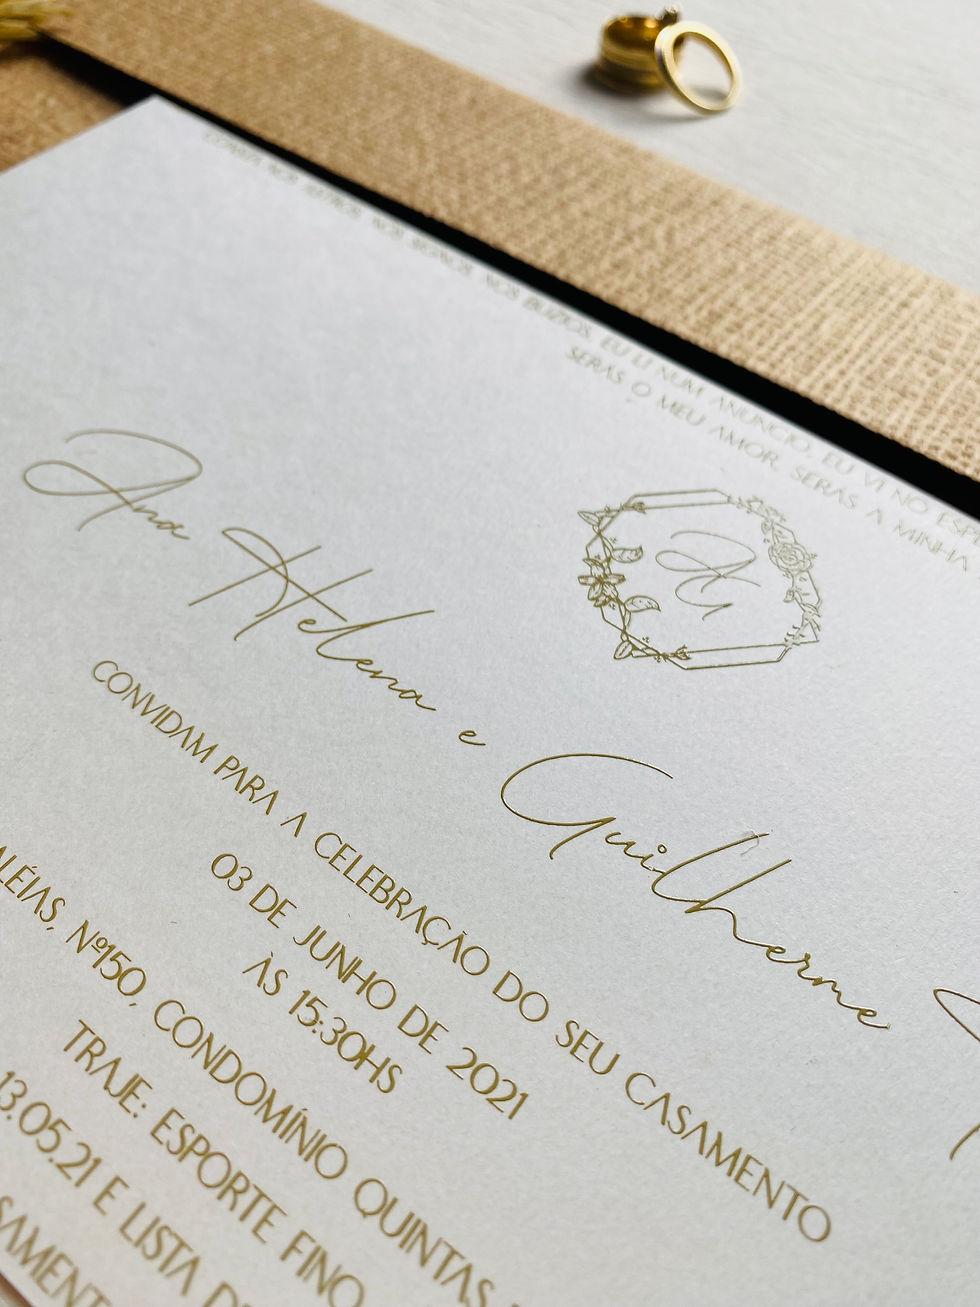 NOS BÚZIOS, EU LI NUM ANÚNCIO, EU VI NO
SERÁS O MEU AMOR, SERÁS A MINHA
AG
Ana Helena e Guilherme
CONVIDAM PARA A CELEBRAÇÃO DO SEU CASAMENTO
03 DE JUNHO DE 2021
ÀS 15:30HS
Nº150, CONDOMÍNIO QUINTAS
TRAJE: ESPORTE FINO
13.05.21 E LISTA